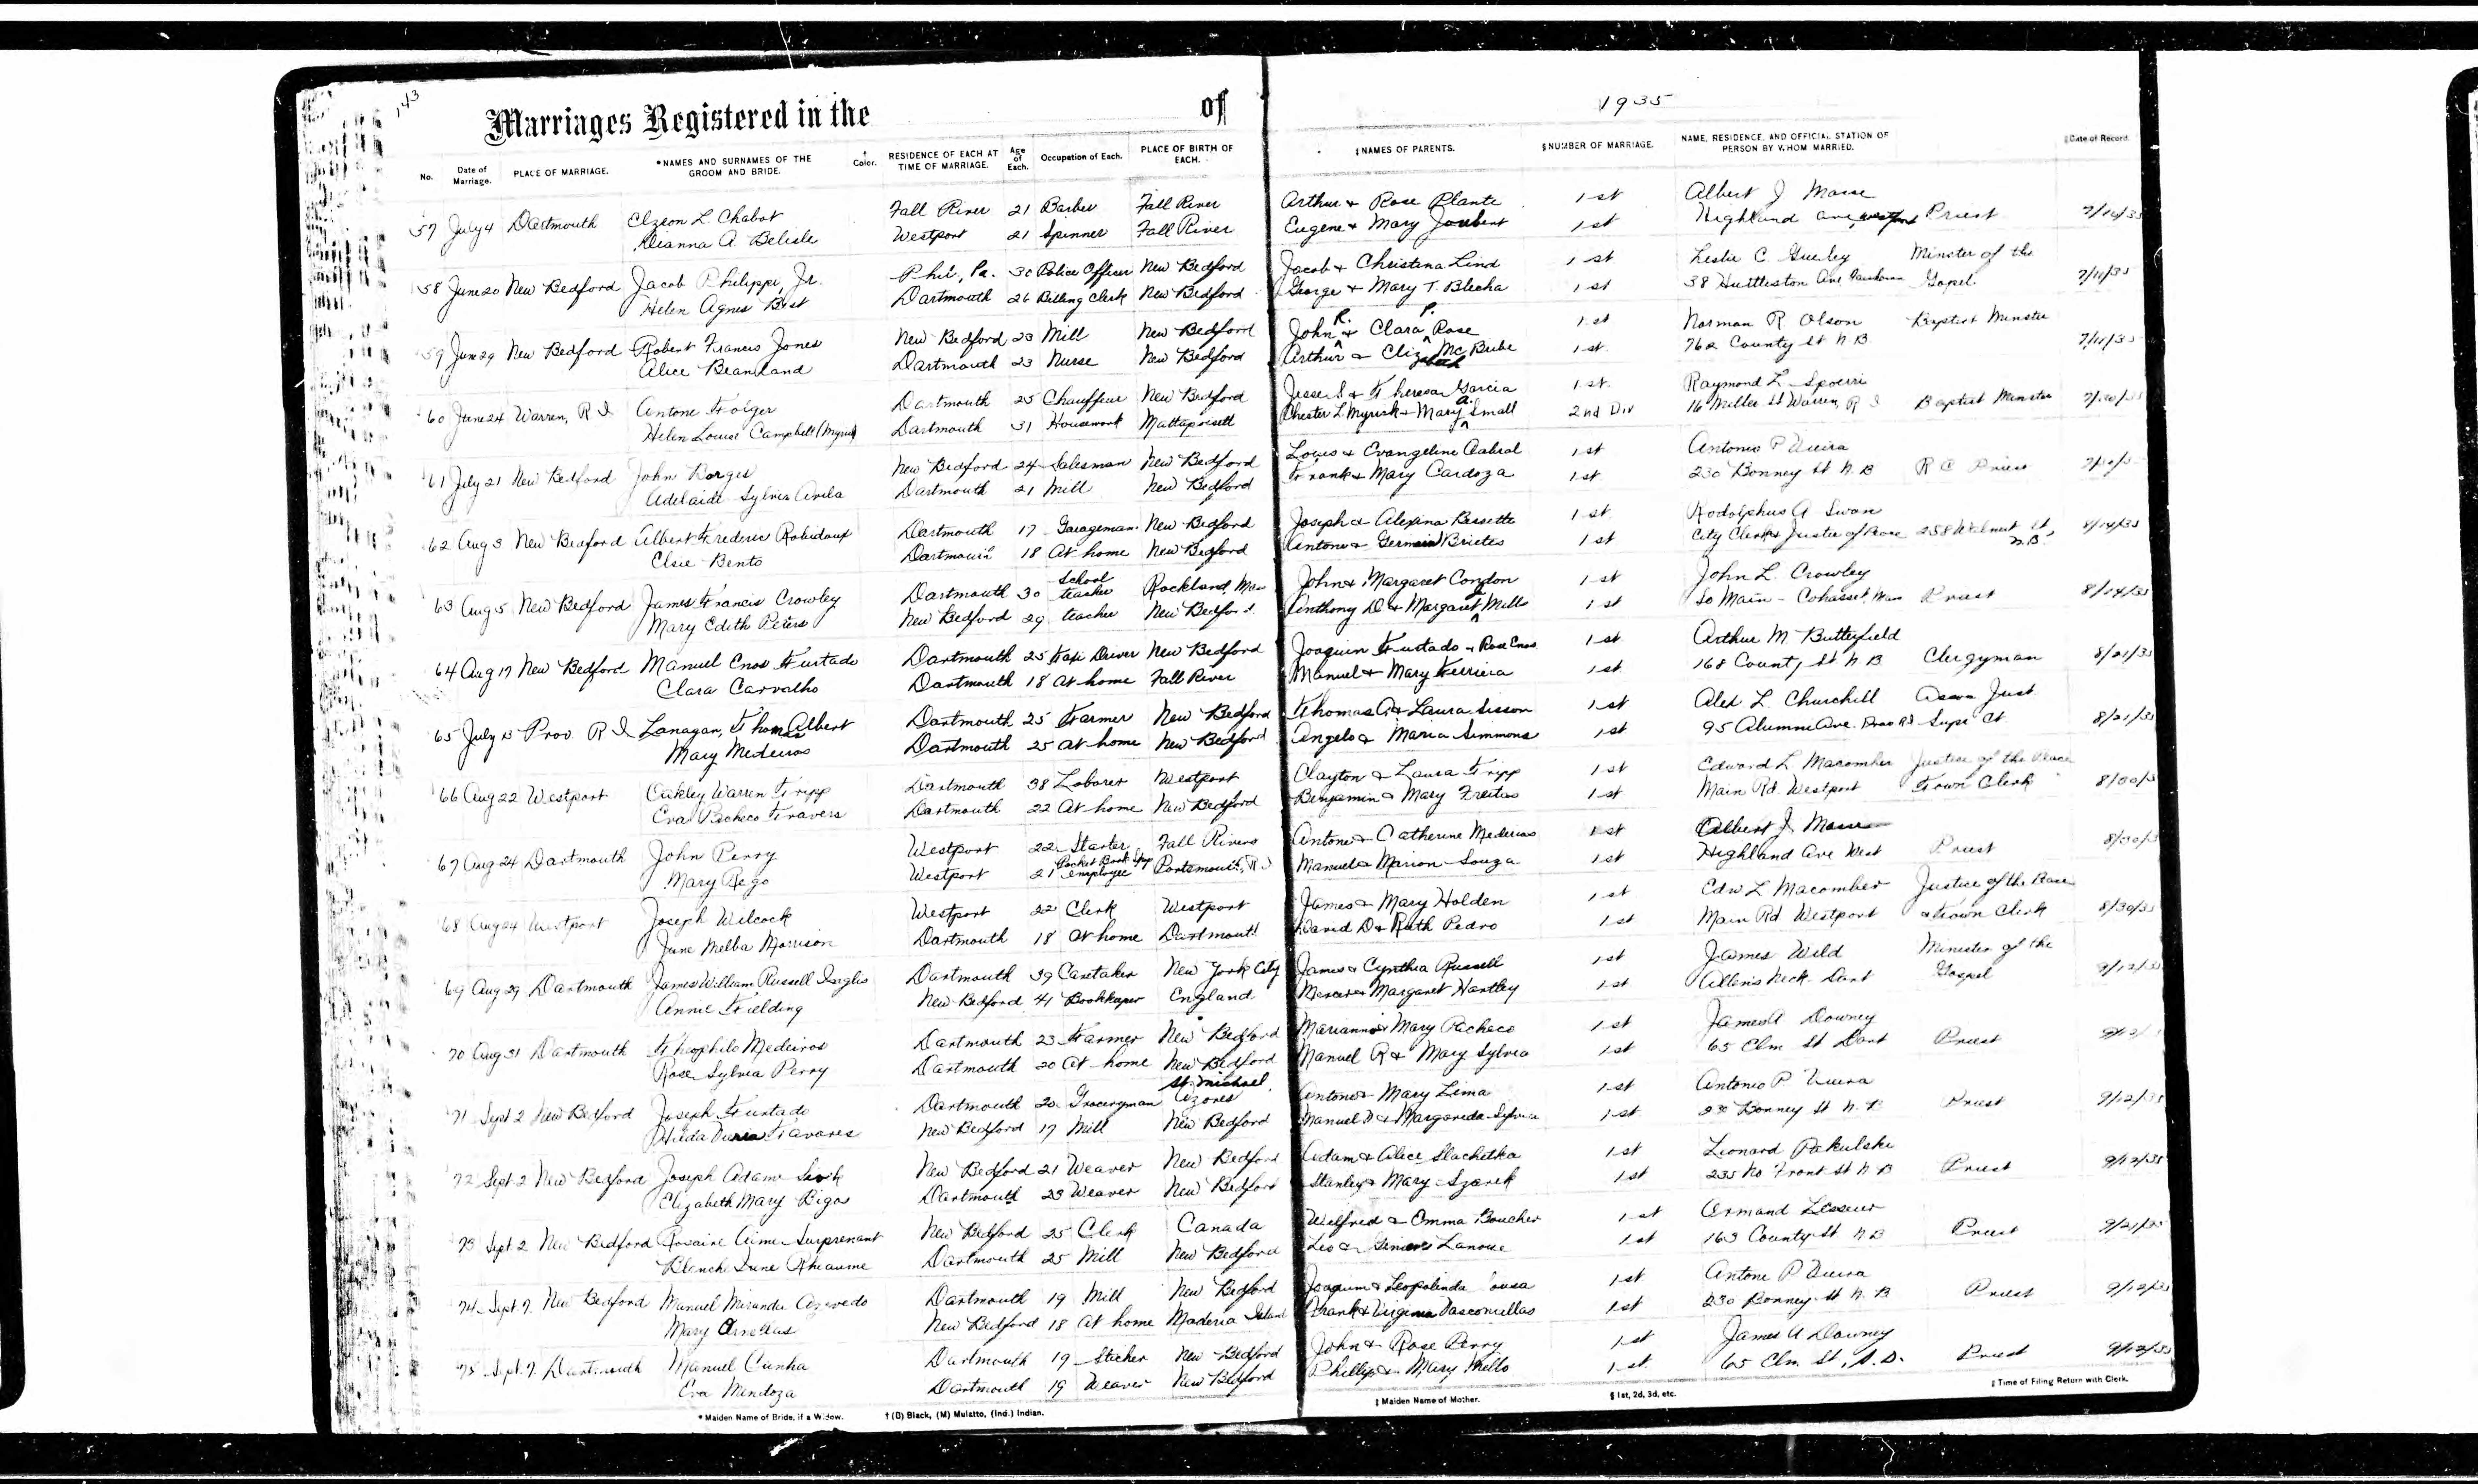 143
Marriages Registered in the of 1935
No. Date of Marriage. PLACE OF MARRIAGE. *NAMES AND SURNAMES OF THE GROOM AND BRIDE. † Color. RESIDENCE OF EACH AT TIME OF MARRIAGE. Age of Each. Occupation of Each. PLACE OF BIRTH OF EACH. ‡NAMES OF PARENTS. §NUMBER OF MARRIAGE. NAME, RESIDENCE, AND OFFICIAL STATION OF PERSON BY WHOM MARRIED. ‖Date of Record.
57 July 4 Dartmouth Elzeon L. Chabot Fall River 21 Barber Fall River Arthur & Rose Plante 1st Albert J Masse
Deanna A. Belisle Westport 21 Spinner Fall River Eugene & Mary Joubert 1st Highland Ave, Westport Priest
58 June 20 New Bedford Jacob Philippi, Jr. Phil., Pa. 30 Police Officer New Bedford Jacob & Christina Lind 1st Leslie C. Minster of the
Helen Agnes Best Dartmouth 26 Billing Clerk New Bedford George & Mary T. Blecha 1st 38 Huttleston Ave Gospel
59 June 29 New Bedford Robert Francis Jones New Bedford 23 Mill New Bedford John R. & Clara P. Rose 1st Norman R Olson Baptist Minster
Alice Beanland Dartmouth 23 Nurse New Bedford Arthur & 1st 762 County St N B 7/11/35
60 June 24 Warren, R I Antone Dartmouth 25 Chauffeur New Bedford Jesse S. & Theresa Garcia 1st Raymond L. Spoerri
Helen Louise Campbell (Myrick) Dartmouth 31 Housework Mattapoisett Chester L Myrick & Mary A. Small 2nd Div 16 Miller St Warren, R I Baptist Minster
61 July 21 New Bedford John Borges New Bedford 24 Salesman New Bedford Louis & Evangeline Cabral 1st Antonio P Vieira
Adelaide Sylvia Avila Dartmouth 21 Mill New Bedford Frank & Mary Cardoza 1st 230 Bonney St N B R C Priest
62 Aug 3 New Bedford Albert Frederic Robidoux Dartmouth 17 Garageman New Bedford Joseph & Alexina Bessette 1st Rodolphus A Swan
Elsie Bento Dartmouth 18 At home New Bedford Antone & 1st City Clerk & Justice of Peace 258 Walnut St, N.B. 8/14/35
63 Aug 5 New Bedford James Francis Crowley Dartmouth 30 School teacher Rockland, Mass John & Margaret Condon 1st John L. Crowley
Mary Edith Peters New Bedford 29 teacher New Bedford Anthony D & Margaret Mills 1st So Main - Cohasset, Mass Priest 8/14/35
64 Aug 17 New Bedford Manuel Enos Furtado Dartmouth 25 Taxi Driver New Bedford Joaquin Furtado & Rose Enos 1st Arthur M Butterfield
Clara Carvalho Dartmouth 18 At home Fall River Manuel & Mary Ferriera 1st 168 County St N B Clergyman 8/21/35
65 July Prov. R I Lanagan, Thomas Albert Dartmouth 25 Farmer New Bedford Thomas A & Laura Sisson 1st Alex L. Churchill Just
Mary Medeiros Dartmouth 25 at home New Bedford Angelo & Maria Simmons 1st 95 Alumni Ave. Prov R I Supr Ct. 8/21/35
66 Aug 22 Westport Oakley Warren Tripp Dartmouth 38 Laborer Westport Clayton & Laura Tripp 1st Edward L. Macomber Justice of the Peace
Eva Pacheco Travers Dartmouth 22 At home New Bedford Benjamin & Mary Freitas 1st Main Rd Westport Town Clerk 8/30/3
67 Aug 24 Dartmouth John Perry Westport 22 Starter Fall River Antone & Catherine Mederios 1st Albert J. Masse
Mary Rego Westport 21 Pocket Book employee Portsmouth, R I Manuel & Marion Souza 1st Highland Ave West Priest 8/30/3
68 Aug 24 Westport Joseph Wilcock Westport 22 Clerk Westport James & Mary Holden 1st Edw L Macomber Justice of the Peace
June Melba Morrison Dartmouth 18 At home Dartmouth David D & Ruth Pedro 1st Main Rd Westport & Town Clerk 8/30/35
69 Aug 29 Dartmouth James William Russell Inglis Dartmouth 39 Caretaker New York City James & Cynthia Russell 1st James Wild Minister of the
Annie Fielding New Bedford 41 Bookkeeper England Mercer & Margaret Hartley 1st Allens Neck Dart Gospel 9/12/35
70 Aug 31 Dartmouth Theophilo Medeiros Dartmouth 23 Farmer New Bedford Marianno & Mary Pacheco 1st James A Downey
Rose Sylvia Perry Dartmouth 20 At home New Bedford Manuel R & Mary Sylvia 1st 65 Elm St Dart Priest
71 Sept 2 New Bedford Joseph Furtado Dartmouth 20 Groceryman St. Michael, Azores Antone & Mary Lima 1st Antonio P Vieira
Hilda Tavares New Bedford 17 Mill New Bedford Manuel D & Margareda Sylvia 1st 230 Bonney St N. B Priest 9/12/35
72 Sept 2 New Bedford Joseph Adam New Bedford 21 Weaver New Bedford Adam & Alice Slachetka 1st Leonard Pakulski
Elizabeth Mary Bigos Dartmouth 23 Weaver New Bedford Stanley & Mary Szarek 1st 235 No Front St N B Priest 9/12/35
73 Sept 2 New Bedford Rosaire Aime Surprenant New Bedford 25 Clerk Canada Wilfred & Emma Boucher 1st Armand
Blanche Irene Rheaume Dartmouth 25 Mill New Bedford Leo & Lanoue 1st 163 County St N B Priest 9/21/35
74 Sept 7 New Bedford Manuel Miranda Azevedo Dartmouth 19 Mill New Bedford Joaquim & Leopolinda Sousa 1st Antone P Vieira
Mary Ornellas New Bedford 18 At home Maderia Island Frank & Virginia Vasconcellos 1st 230 Bonney St N. B Priest 9/12/35
75 Sept 7. Dartmouth Manuel Cunha Dartmouth 19 New Bedford John & Rose Perry 1st James A Downey
Eva Mendoza Dartmouth 19 Weaver New Bedford Phillip & Mary Mello 1st 65 Elm St, S. D. Priest 9/12/35
* Maiden Name of Bride, if a Widow. † (B) Black, (M) Mulatto, (Ind.) Indian. ‡ Maiden Name of Mother. § 1st, 2d, 3d, etc. ‖ Time of Filing Return with Clerk.